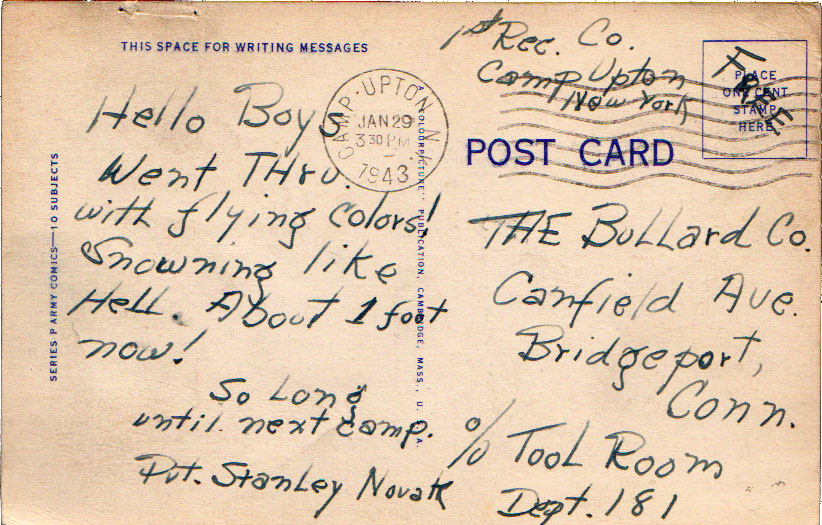 THIS SPACE FOR WRITING MESSAGES
Hello Boys
Went THru.
with flying Colors!
Snowning like
Hell. About 1 foot
now!
So Long
until next camp.
Pvt. Stanley Novak
SERIES P ARMY COMICS—10 SUBJECTS
CAMP UPTON N
JAN 29
3 30 PM
1943
"COLOURPICTURE" PUBLICATION, CAMBRIDGE, MASS., U. S. A.
1st Rec. Co.
Camp Upton
New York
FREE
PLACE
ONE CENT
STAMP
HERE
POST CARD
THE BuLLard Co.
Canfield Ave.
Bridgeport,
Conn.
% TooL Room
Dept. 181